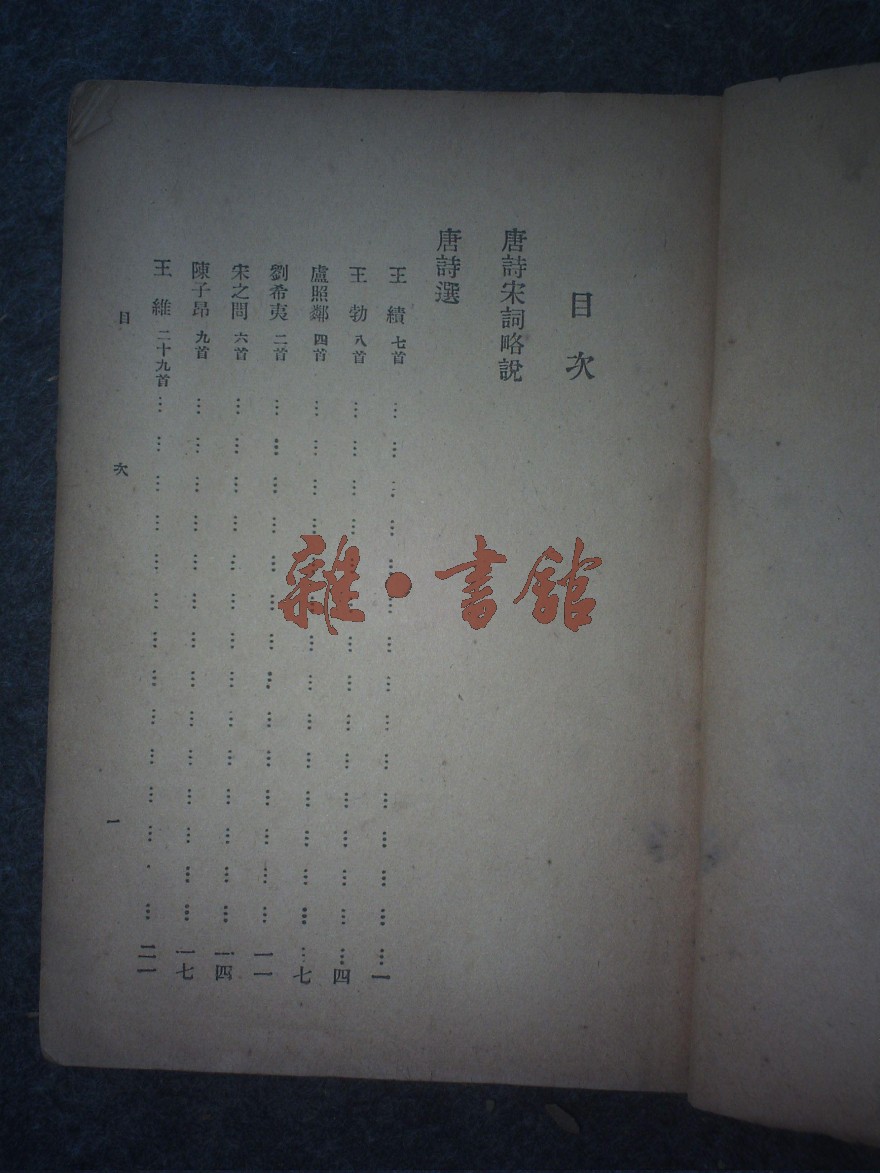 目次
唐詩宋詞略說
唐詩選
王績 七首 一
王勃 八首 四
盧照鄰 四首 七
劉希夷 二首 一一
宋之問 六首 一四
陳子昂 九首 一七
王維 二十九首 二一
目次 一
雜·書館